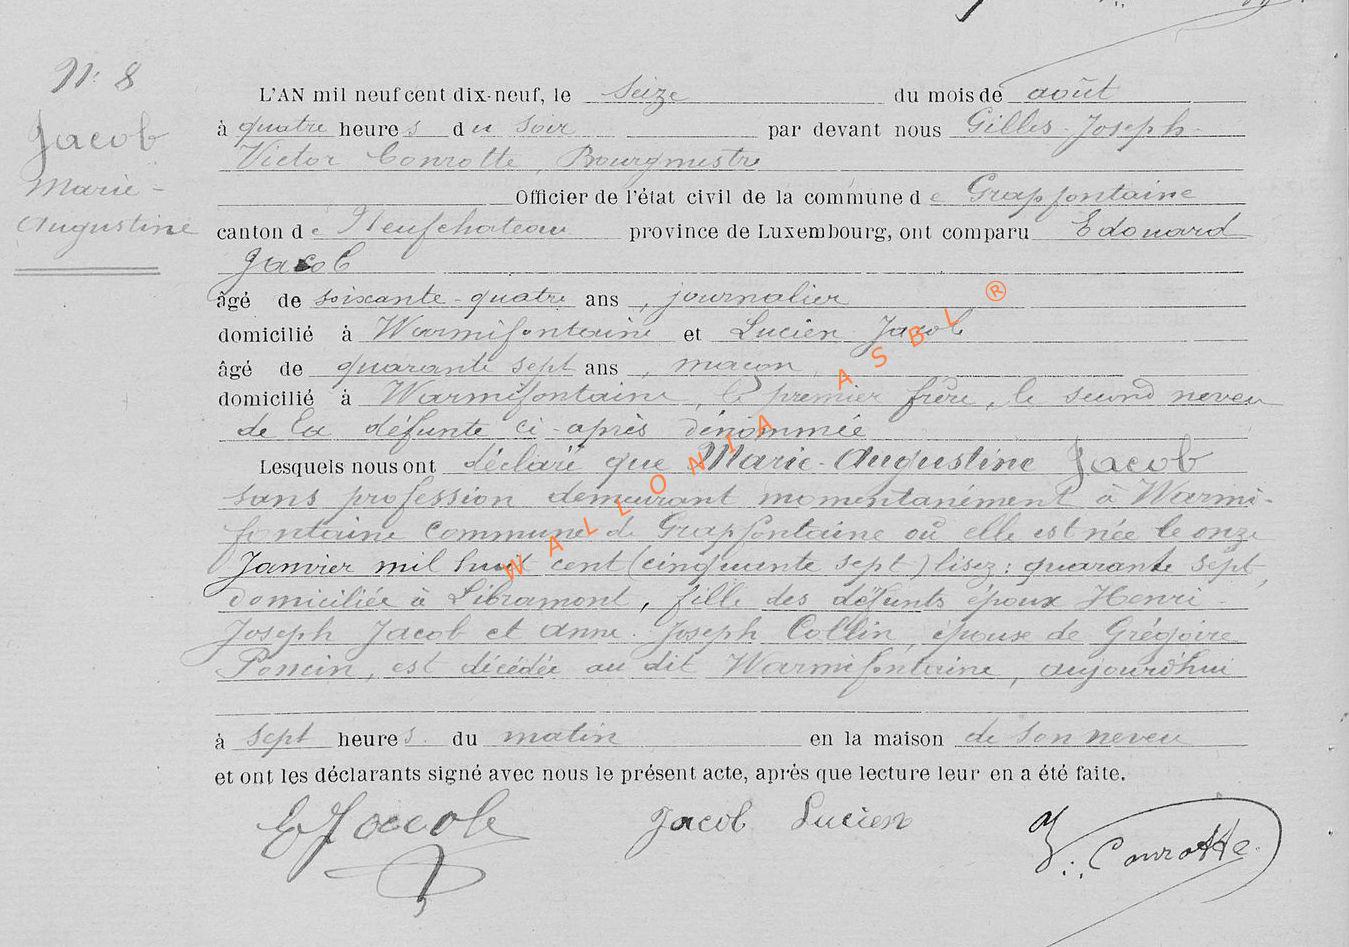 N° 8
Jacob
Marie-
Augustine
L'AN mil neuf cent dix-neuf, le seize du mois de août
à quatre heures du soir par devant nous Gilles-Joseph-
Victor Conrotte, Bourgmestre
Officier de l'état civil de la commune de Grapfontaine
canton de Neufchateau province de Luxembourg, ont comparu Edouard
Jacob
âgé de soixante-quatre ans, journalier
domicilié à Warmifontaine et Lucien Jacob
âgé de quarante sept ans, macon,
domicilié à Warmifontaine, le premier frère, le second neveu
de la défunte ci-après dénommée
Lesquels nous ont déclaré que Marie-Augustine Jacob
sans profession demeurant momentanément à Warmi-
fontaine commune de Grapfontaine où elle est née le onze
Janvier mil huit cent (cinquante sept) lisez: quarante sept,
domiciliée à Libramont, fille des défunts époux Henri-
Joseph Jacob et Anne-Joseph Collin, épouse de Grégoire
Poncin, est décédée au dit Warmifontaine, aujourd'hui
à sept heures du matin en la maison de son neveu
et ont les déclarants signé avec nous le présent acte, après que lecture leur en a été faite.
E Jacob Jacob Lucien V. Conrotte
WALLONIA ASBL ®